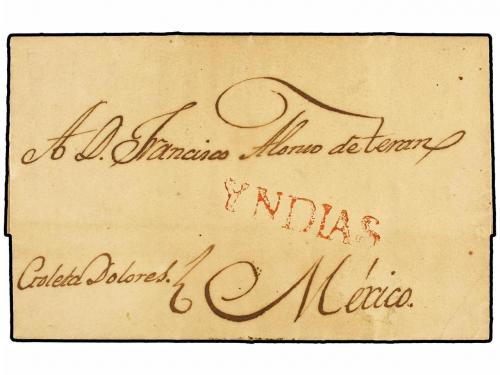 A D. Francisco Alonso de teran
YNDIAS
Goleta Dolores.
México.